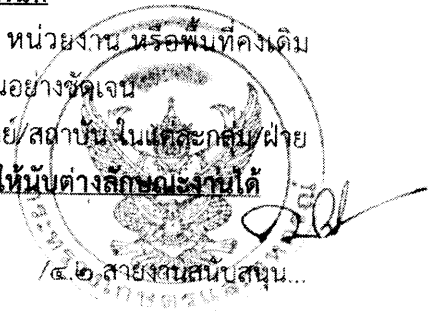 หน่วยงาน หรือพื้นที่คงเดิม
อย่างชัดเจน
/สถาบัน ในแต่ละกลุ่ม/ฝ่าย
ให้นับต่างลักษณะงานได้
/๔.๒ สายงานสนับสนุน...